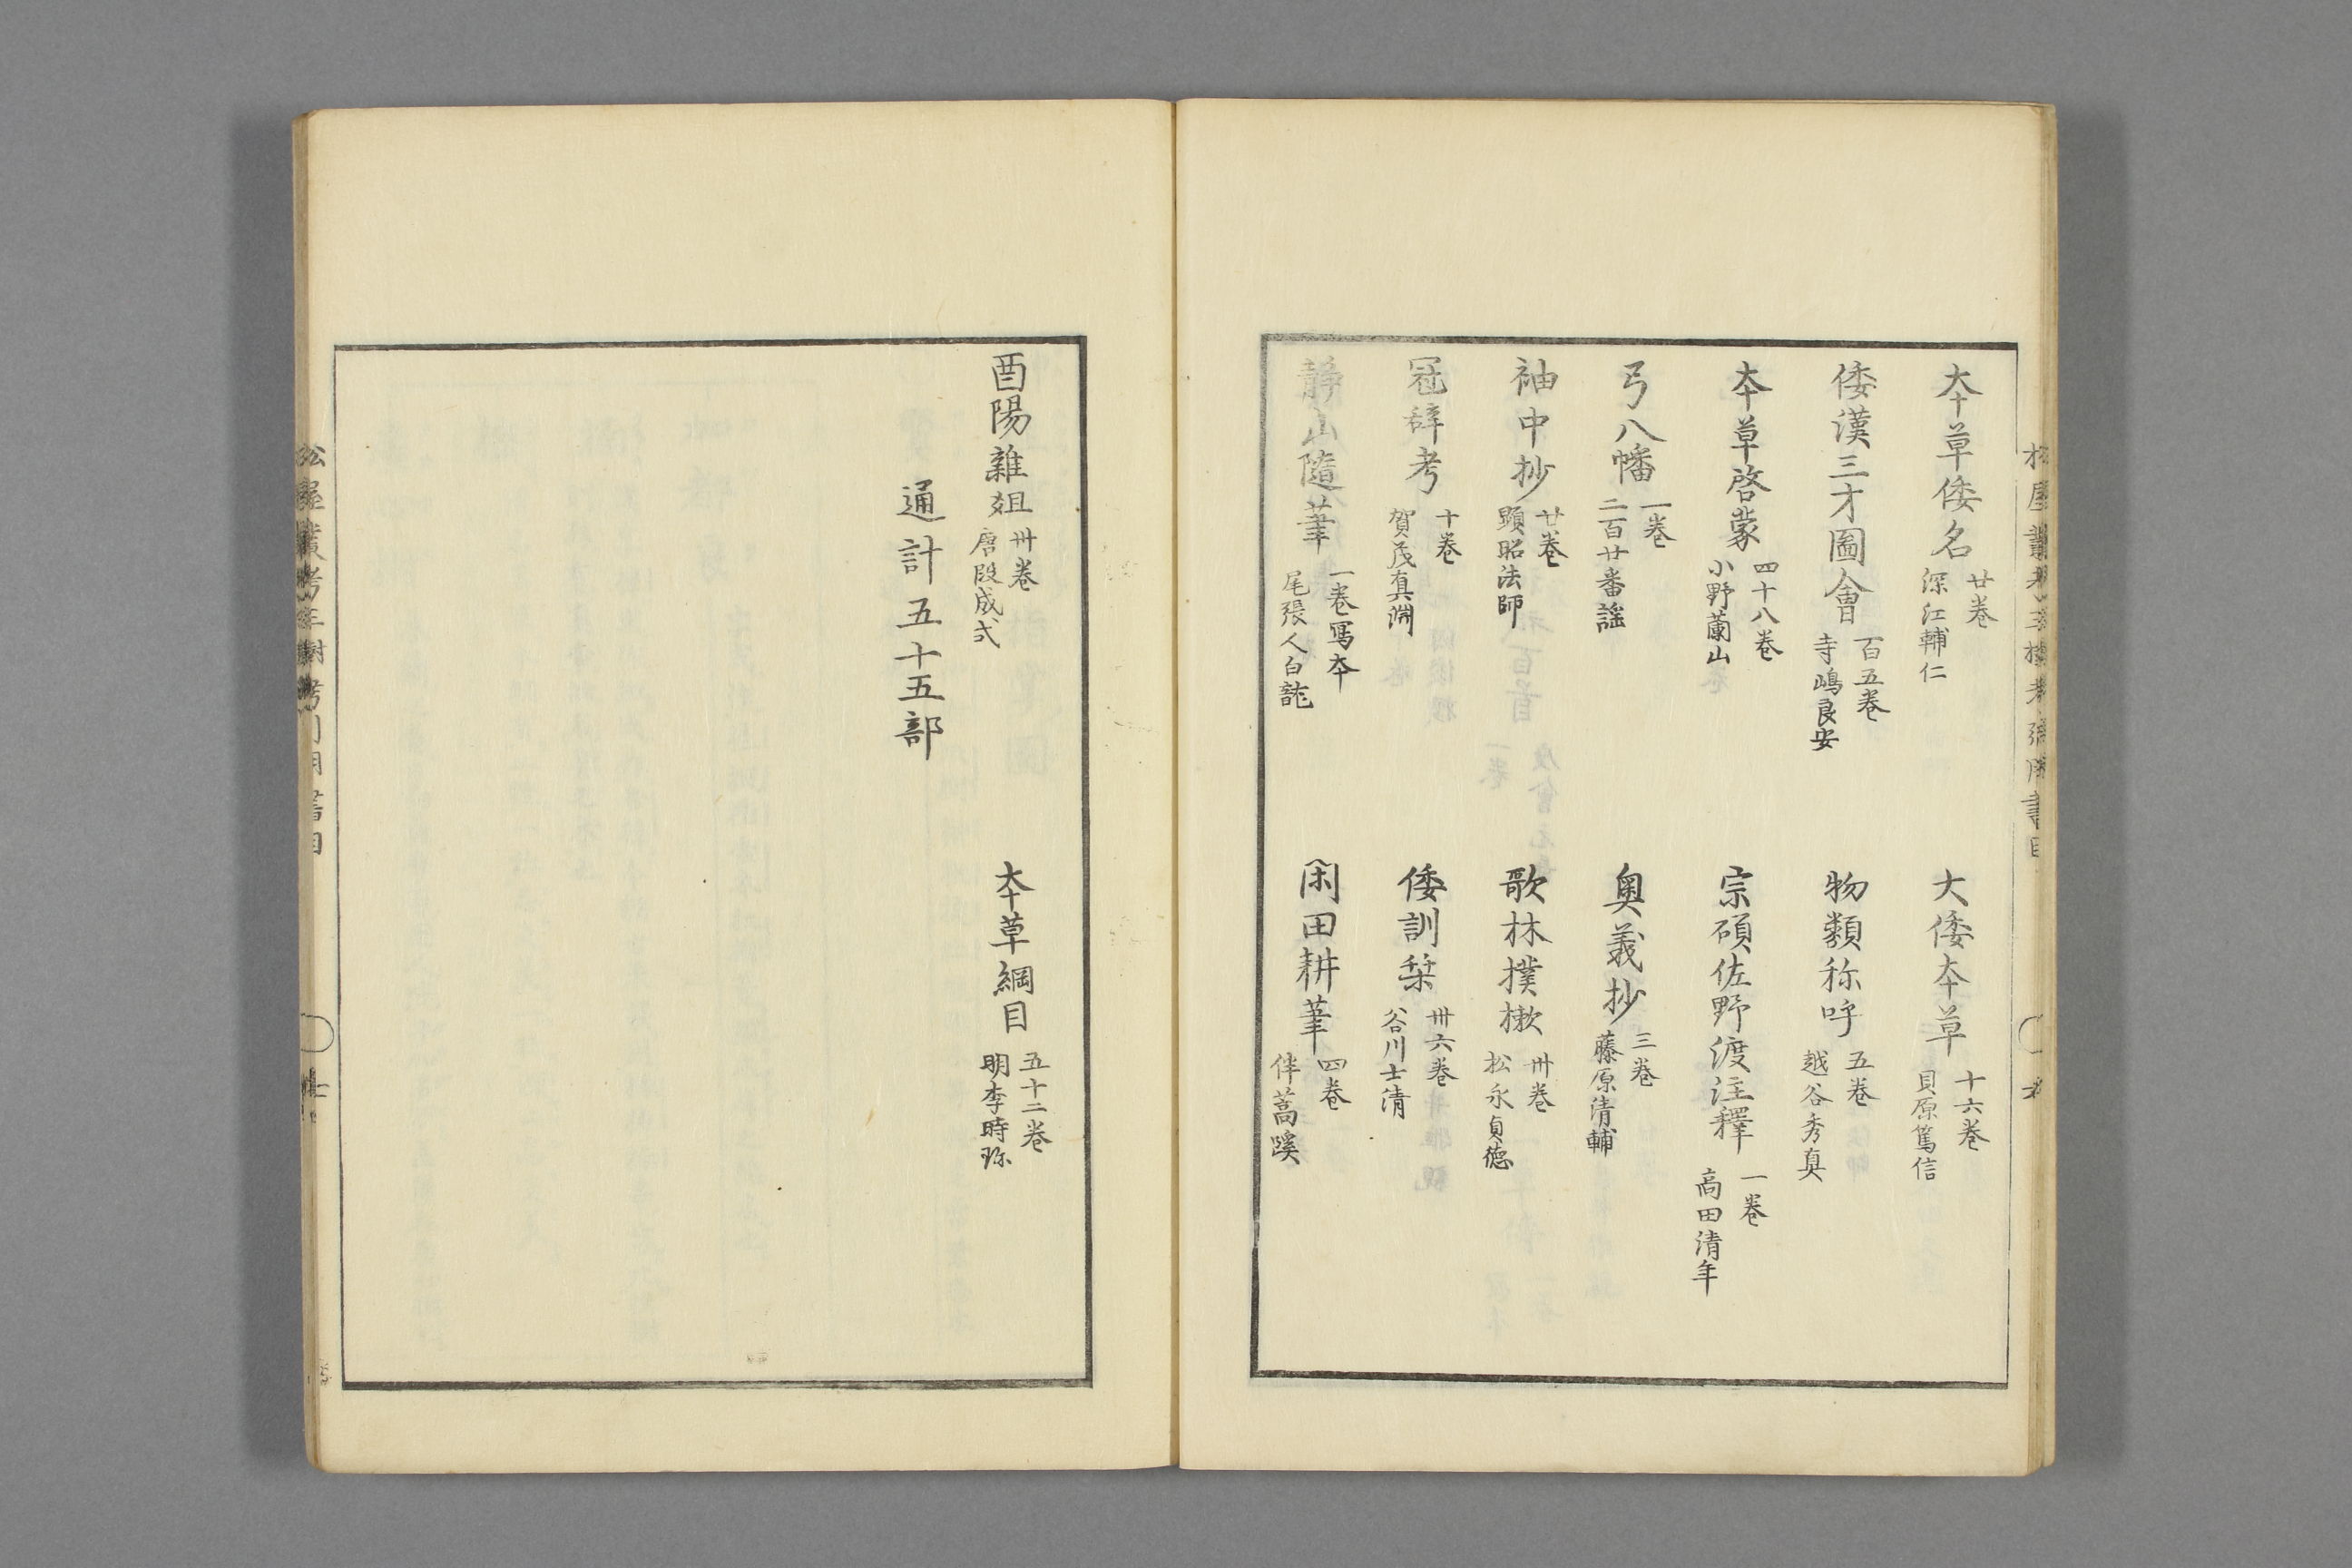 本草倭名 廿巻 深江輔仁
大倭本草 十六巻 貝原篤信
倭漢三才圖會 百五巻 寺嶋良安
物類称呼 五巻 越谷秀真
本草啓蒙 四十八巻 小野蘭山
宗碩佐野渡注釋 一巻 高田清年
弓八幡 一巻 二百廿番謡
奥義抄 三巻 藤原清輔
袖中抄 廿巻 顕昭法師
歌林撲樕 卅巻 松永貞徳
冠辞考 十巻 賀茂真淵
倭訓栞 卅六巻 谷川士清
静山随筆 一巻写本 尾張人白誰
閑田耕筆 四巻 伴蒿蹊
酉陽雑俎 卅巻 唐段成式
本草綱目 五十二巻 明李時珎
通計五十五部